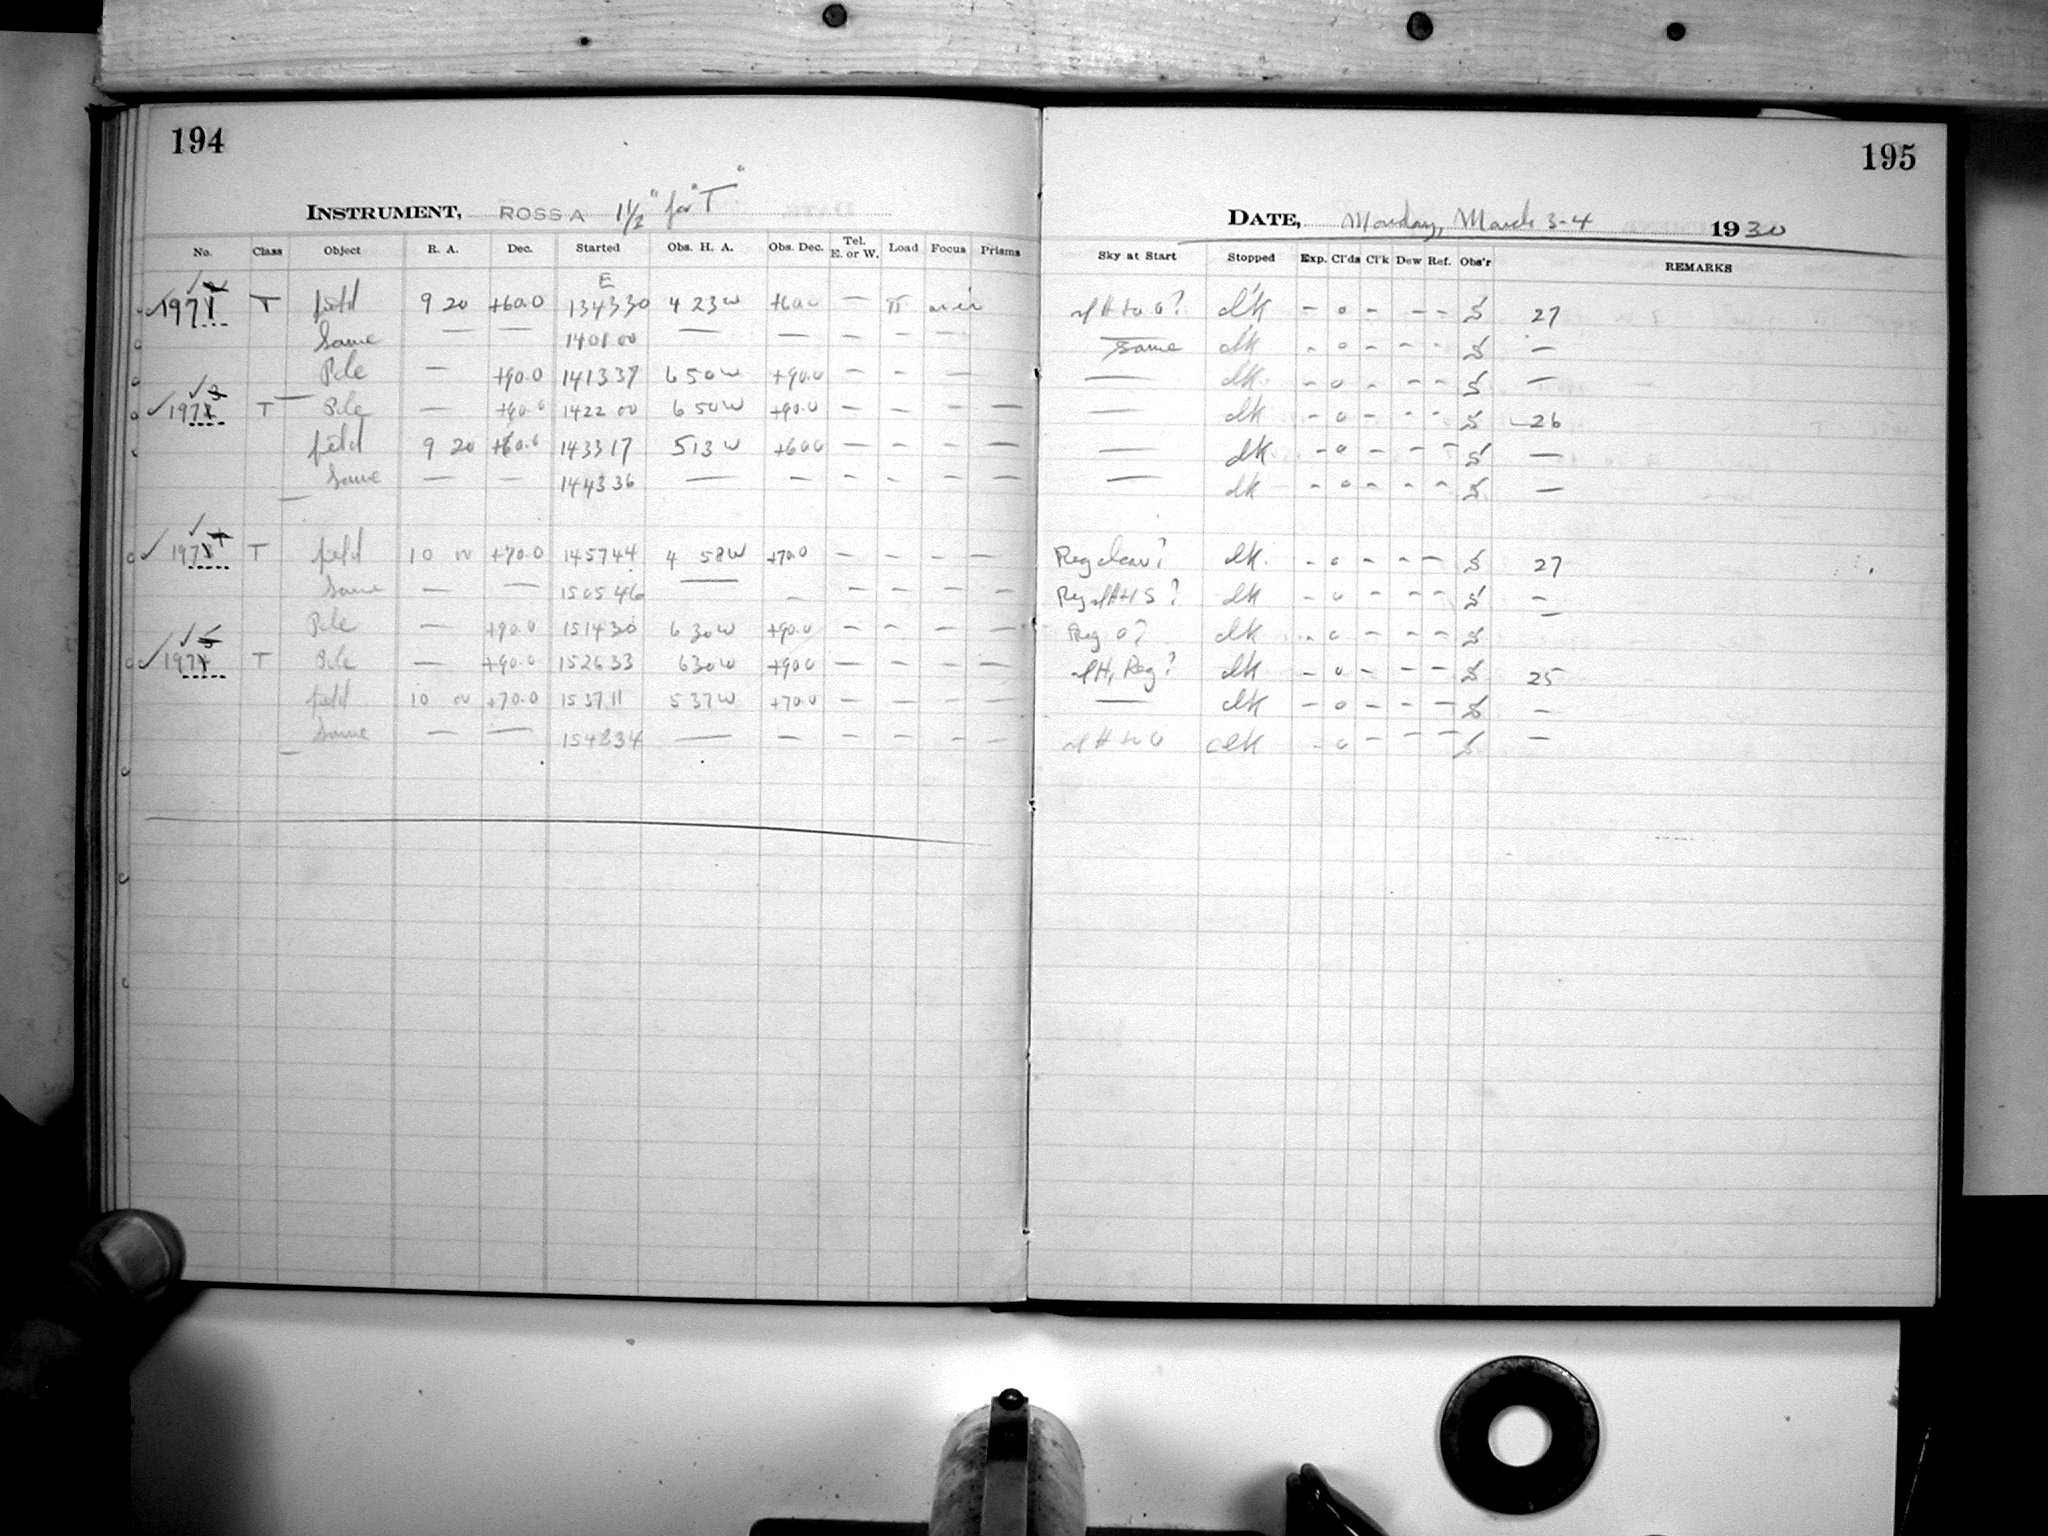 194
INSTRUMENT, ROSS A 1½" for "T"
No. Class Object R. A. Dec. Started Obs. H. A. Obs. Dec. Tel. E. or W. Load Focus Prisms
E
T field 9 20 +60.0 134330 4 23 W +60.0 —
Same — — 140100 — — — — —
Pole — +90.0 141337 6 50 W +90.0 — — —
T Pole — +90.0 142200 6 50 W +90.0 — — — —
field 9 20 +60.0 143317 5 13 W +60.0 — — — —
Same — — 144336 — — — — — —
T field 10 00 +70.0 145744 4 58 W +70.0 — — — —
Same — — 150546 — — — — — —
Pole — +90.0 151430 6 30 W +90.0 — — — —
T Pole — +90.0 152633 6 30 W +90.0 — — — —
field 10 00 +70.0 153711 5 37 W +70.0 — — — —
Same — — 154834 — — — — — —
195
DATE, Monday, March 3-4 1930
Sky at Start Stopped Exp. Cl'ds Cl'k Dew Ref. Obs'r REMARKS
clk - 0 - - - S 27
Same clk - 0 - - - S —
— clk - 0 - - - S —
— clk - 0 - - - S 26
— clk - 0 - - - S —
— clk - 0 - - - S —
Reg clear? clk - 0 - - - S 27
Reg clk - 0 - - - S —
Reg 0? clk - 0 - - - S
Reg? clk - 0 - - - S 25
— clk - 0 - - - S —
clk - 0 - - - S —